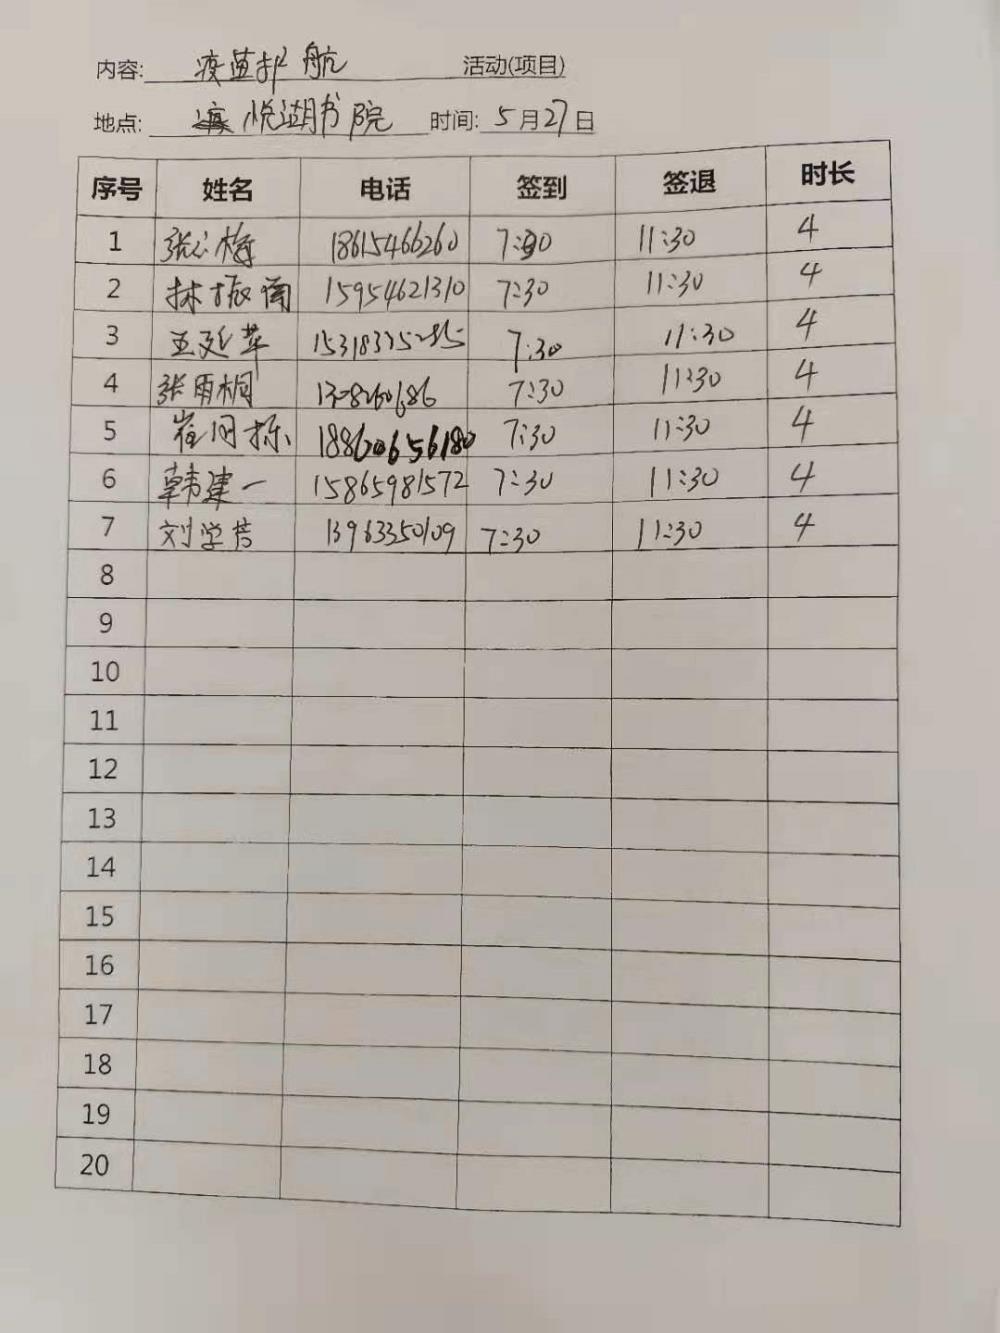 内容: 疫苗护航 活动(项目)
地点: 悦湖书院 时间: 5月27日
序号 姓名 电话 签到 签退 时长
1 张心梅 18615466260 7:30 11:30 4
2 林振南 15954621310 7:30 11:30 4
3 王延苹 7:30 11:30 4
4 张雨桐 7:30 11:30 4
5 崔同栋 18860656180 7:30 11:30 4
6 韩建一 15865981572 7:30 11:30 4
7 刘学芳 13963350109 7:30 11:30 4
8
9
10
11
12
13
14
15
16
17
18
19
20